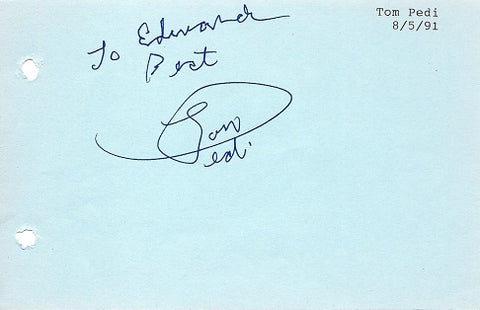 Tom Pedi
8/5/91
To Edward
Best
Tom
Pedi